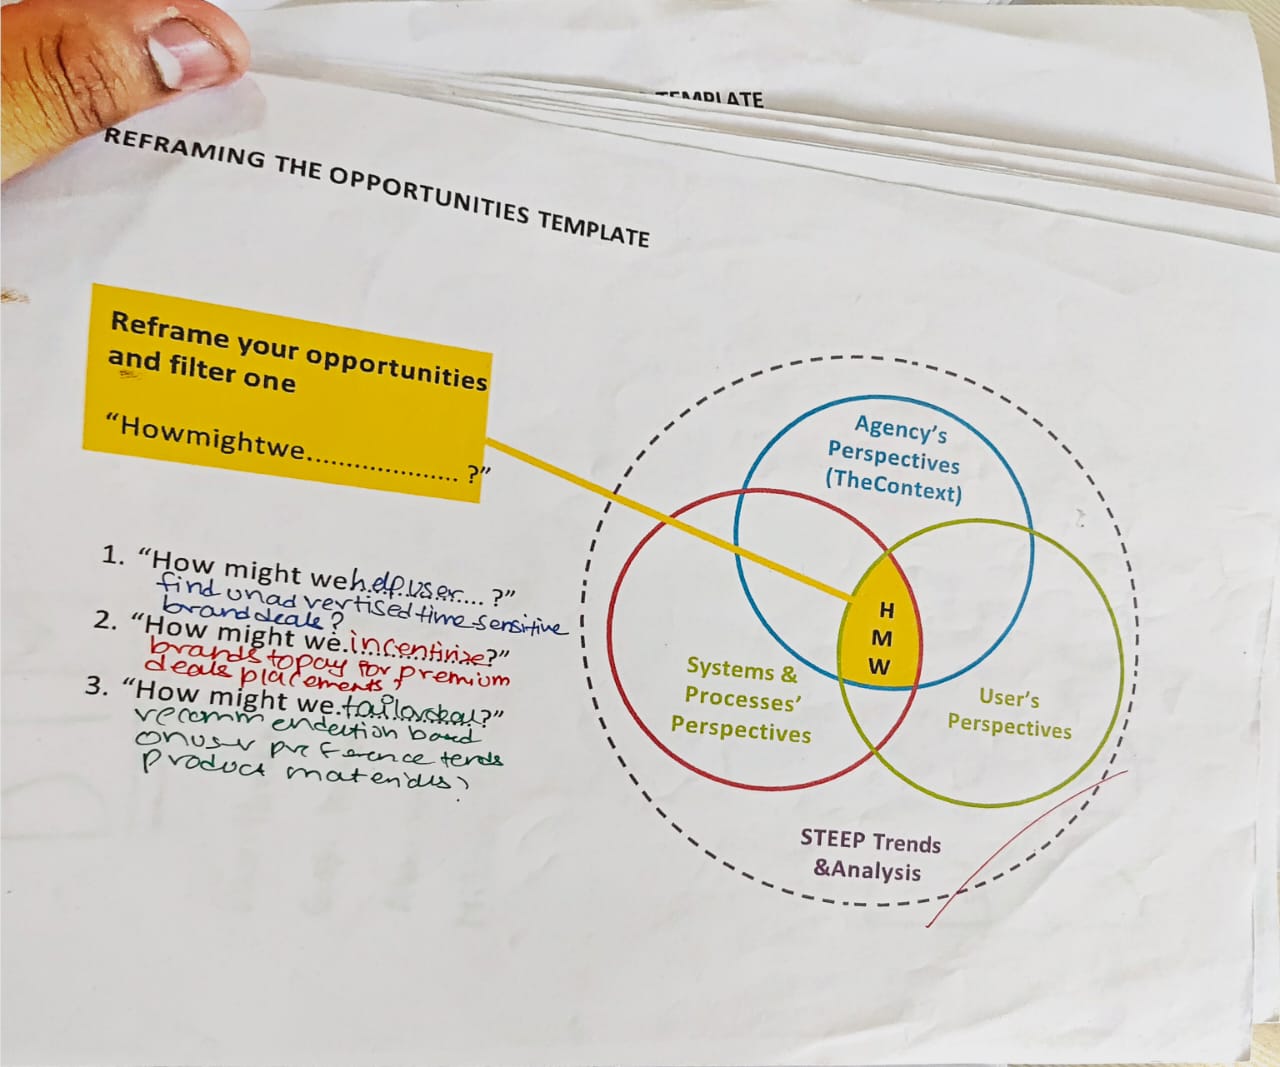 TEMPLATE
REFRAMING THE OPPORTUNITIES TEMPLATE
Reframe your opportunities
and filter one
“Howmightwe.................... ?”
1. “How might we help user.... ?”
find unadvertised time-sensitive
brand deals?
2. “How might we. incentivize?”
brands to pay for premium
deals placements?
3. “How might we. tailor deal?”
recommendation based
on user preference
product materials?
Agency’s
Perspectives
(TheContext)
H
M
W
Systems &
Processes’
Perspectives
User’s
Perspectives
STEEP Trends
&Analysis